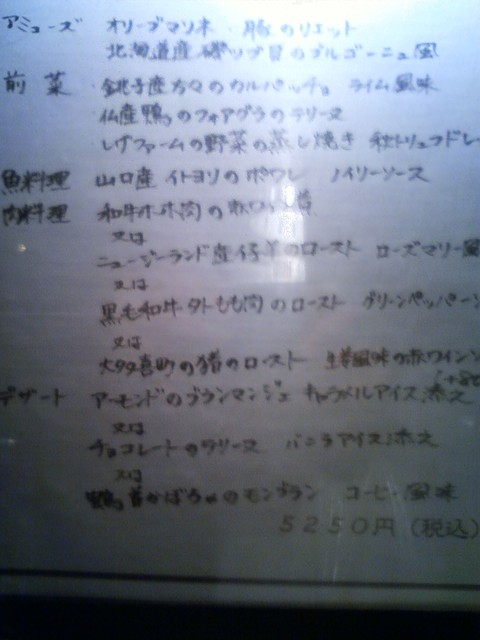 アミューズ オリーブマリネ ・ 豚のリエット
北海道産磯ツブ貝のブルゴーニュ風
前菜 銚子産方々のカルパッチョ ライム風味
仏産鴨のフォアグラのテリーヌ
しげファームの野菜の蒸し焼き 秋トリュフドレ
魚料理 山口産イトヨリのポワレ ノイリーソース
肉料理 和牛ホホ肉の赤ワイン
又は
ニュージーランド産仔羊のロースト ローズマリー風
又は
黒毛和牛外もも肉のロースト グリーンペッパー
又は
大多喜町の猪のロースト 生姜風味の赤ワインソ
デザート アーモンドのブランマンジェ キャラメルアイス添え
又は
チョコレートのテリーヌ バニラアイス添え
又は
かぼちゃのモンブラン コーヒー風味
5250円(税込)